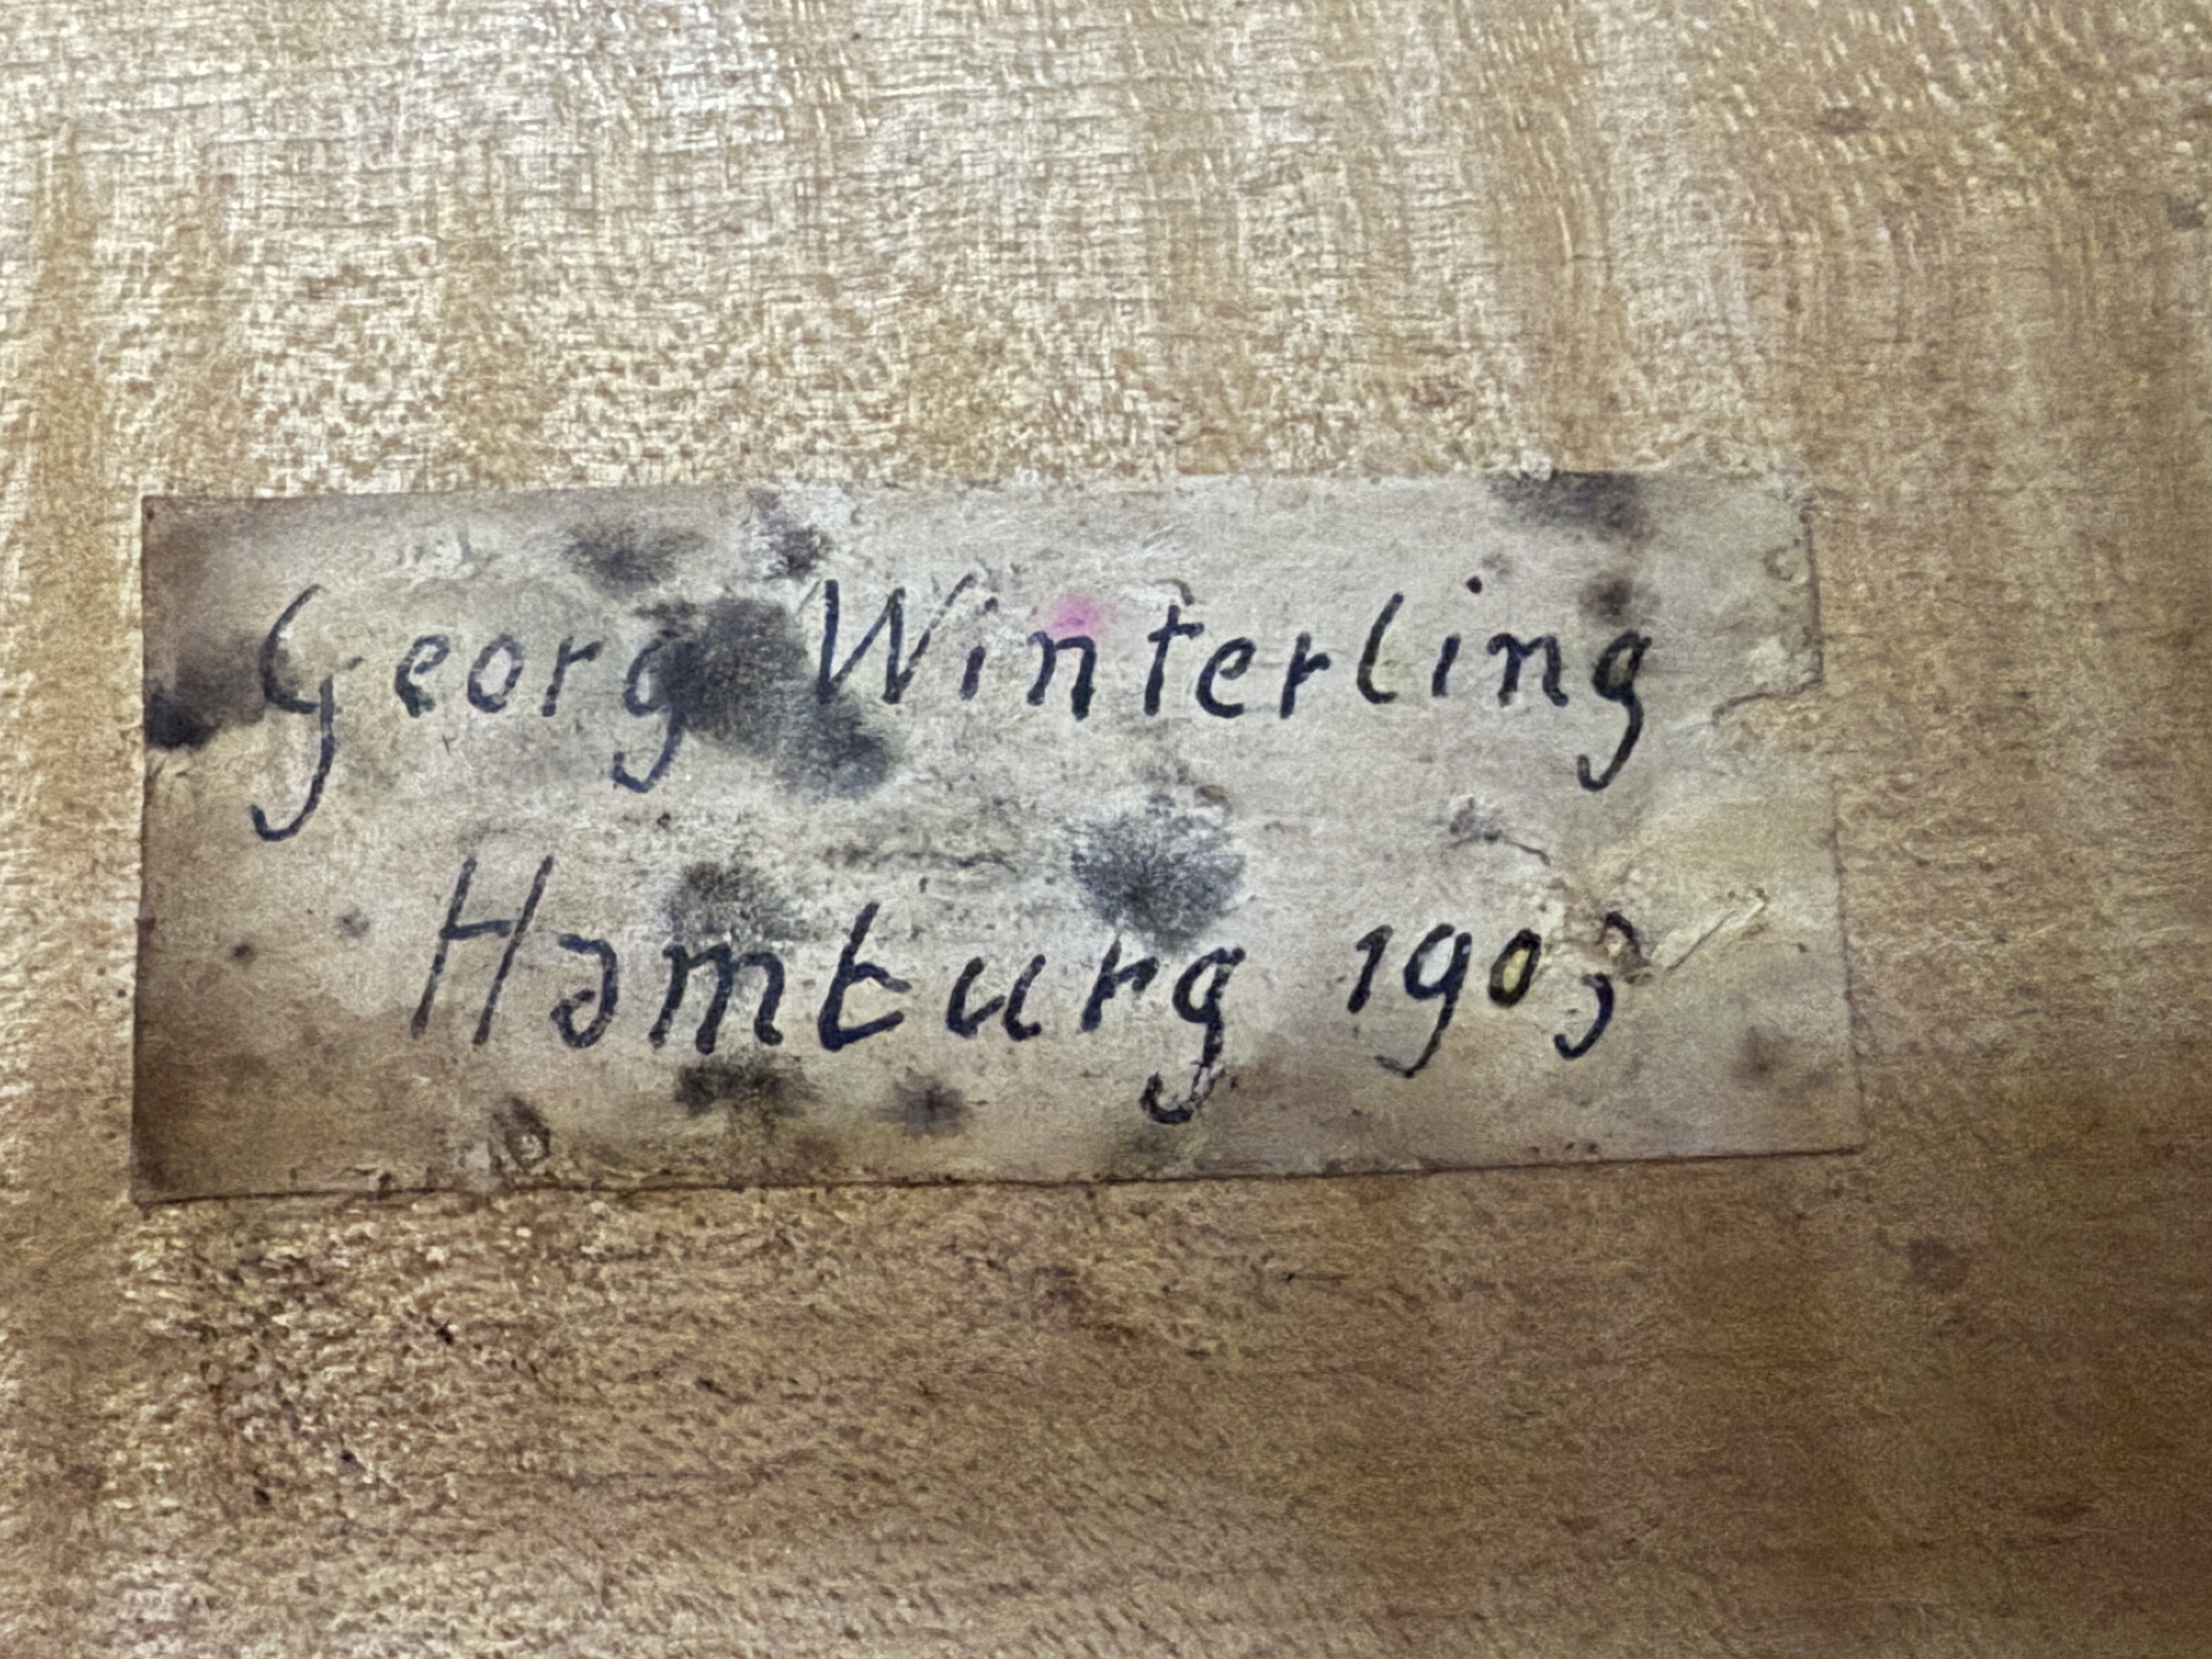 Georg Winterling
Hamburg 1903